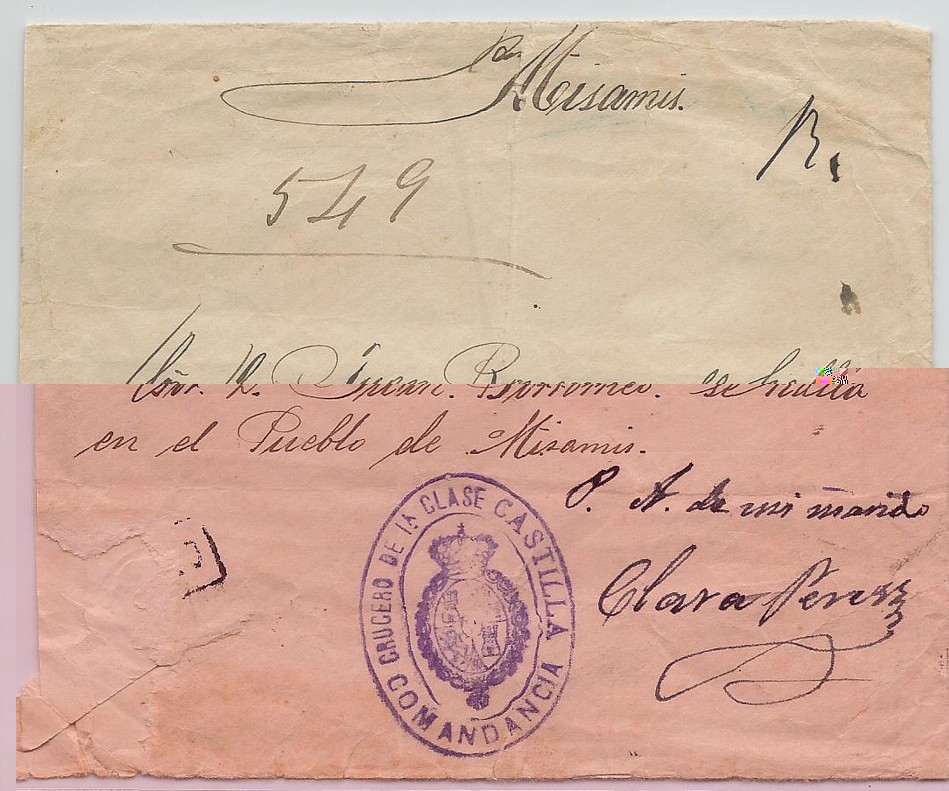 Por Misamis.
R.
549
Señor D. Juan Borromeo. se halla
en el Pueblo de Misamis.
P. A. de mi marido
Clara Perez
CRUCERO DE 1A CLASE CASTILLA
COMANDANCIA